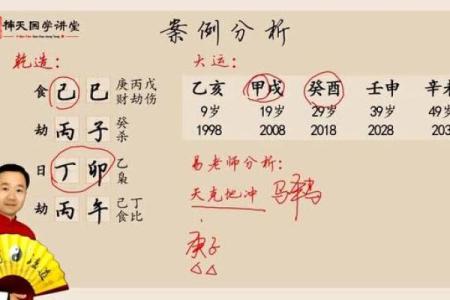 神天国学讲堂
案例分析
乾造： 大运：
食 己 巳 庚丙戊 财劫伤
劫 丙 子 癸 杀
日 丁 卯 乙 枭
劫 丙 午 己丁 食比
乙亥 甲戌 癸酉 壬申 辛未
9岁 19岁 29岁 39岁 49岁
1998 2008 2018 2028 203
易老师分析：
天克地冲
庚子